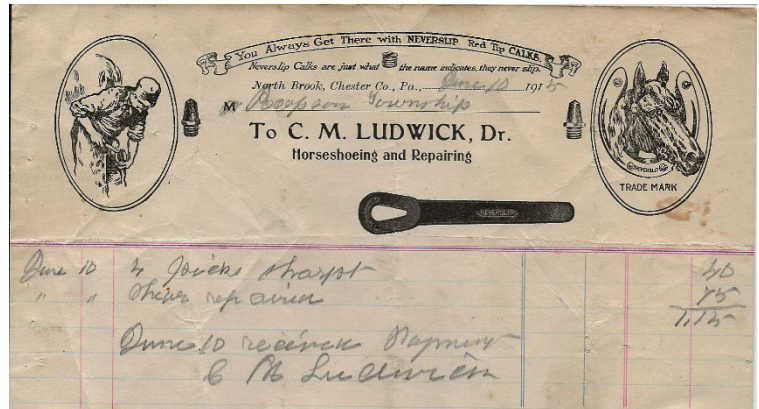 You Always Get There with NEVERSLIP Red Tip CALKS.
Neverslip Calks are just what the name indicates, they never slip.
North Brook, Chester Co., Pa., June 10 1915
M Township
To C. M. LUDWICK, Dr.
Horseshoeing and Repairing
NEVERSLIP
TRADE MARK
NEVERSLIP
June 10 4 Picks sharpt 40
" " repaired 75
1,15
June 10 received Payment
C M Ludwick